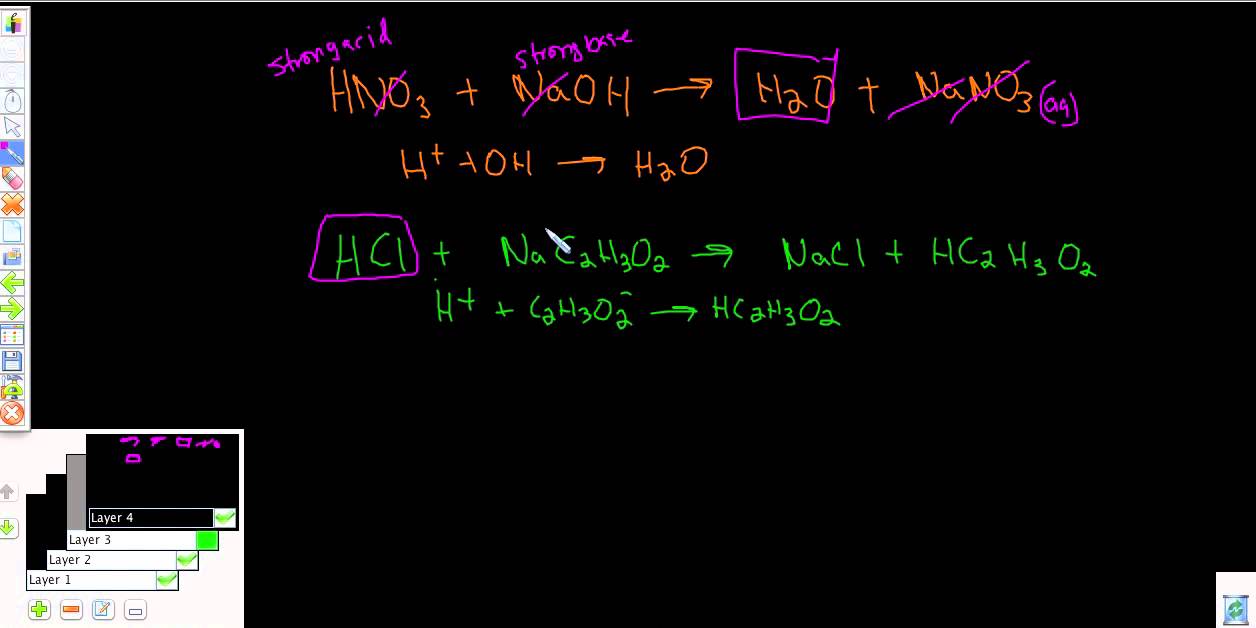 strong acid strong base
HNO3 + NaOH → H2O + NaNO3 (aq)
H+ + OH → H2O
HCl + NaC2H3O2 → NaCl + HC2H3O2
H+ + C2H3O2- → HC2H3O2
Layer 4
Layer 3
Layer 2
Layer 1